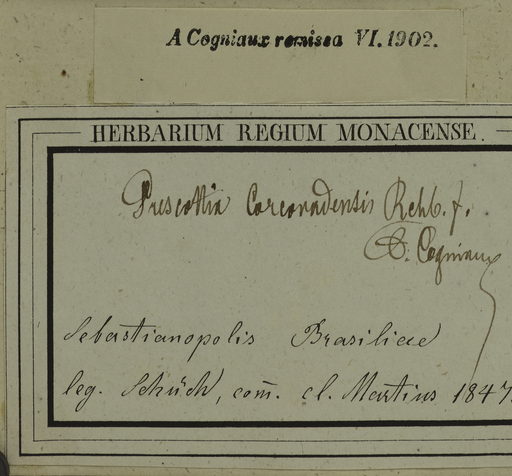 A Cogniaux remissa VI. 1902.
HERBARIUM REGIUM MONACENSE.
Prescottia Corcovadensis Rchb. f.
A. Cogniaux
Sebastianopolis Brasiliae
leg. Schüch, com̄. cl. Martius 1847.